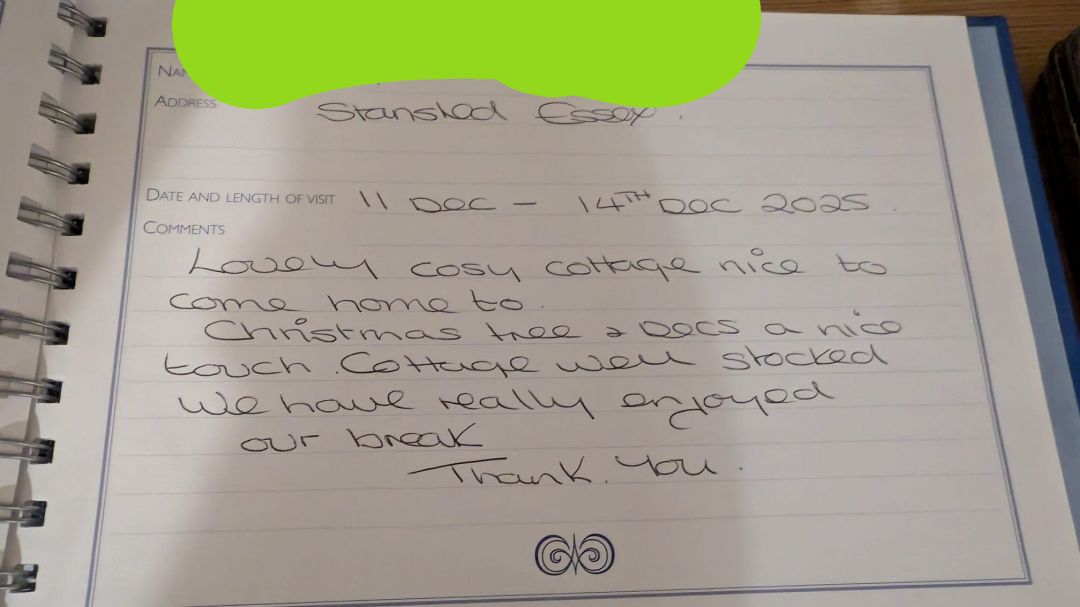 NA
ADDRESS Stansted Essex.
DATE AND LENGTH OF VISIT 11 DEC - 14TH DEC 2025.
COMMENTS
Lovely cosy cottage nice to
come home to.
Christmas tree & Decs a nice
touch. Cottage well stocked
We have really enjoyed
our break
Thank. You.